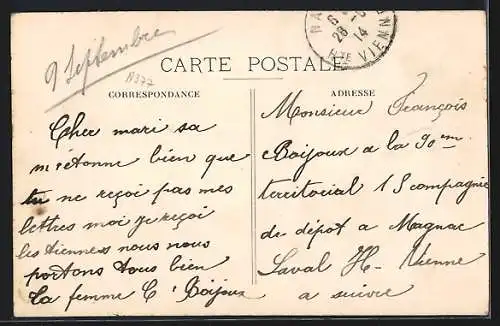 9 Septembre
CARTE POSTALE
CORRESPONDANCE
ADRESSE
Cher mari sa
m'étonne bien que
tu ne reçoi pas mes
lettres moi je reçoi
les tiennes nous nous
portons tous bien
ta femme C. Boijoux
Monsieur François
Boijoux a la 90em
territorial 15 compagnie
de dépot a Magnac
Laval H- Vienne
a suivre
28 - 14
HTE VIENNE